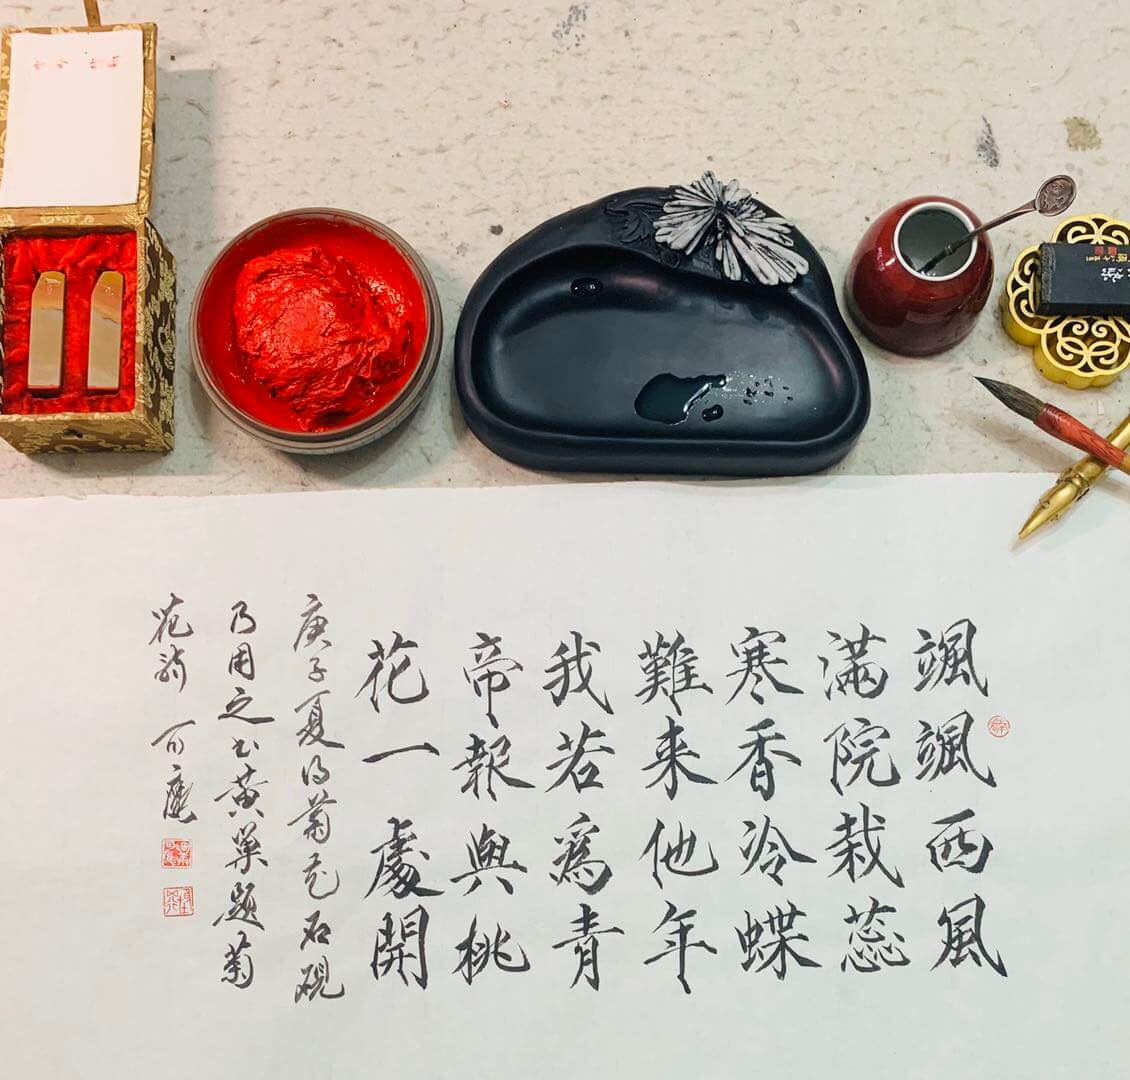 颯颯西風
滿院栽蕊
寒香冷蝶
難来他年
我若為青
帝報與桃
花一處開
庚子夏得菊花石硯
乃用之書黄巢題菊
花詩 百鹿